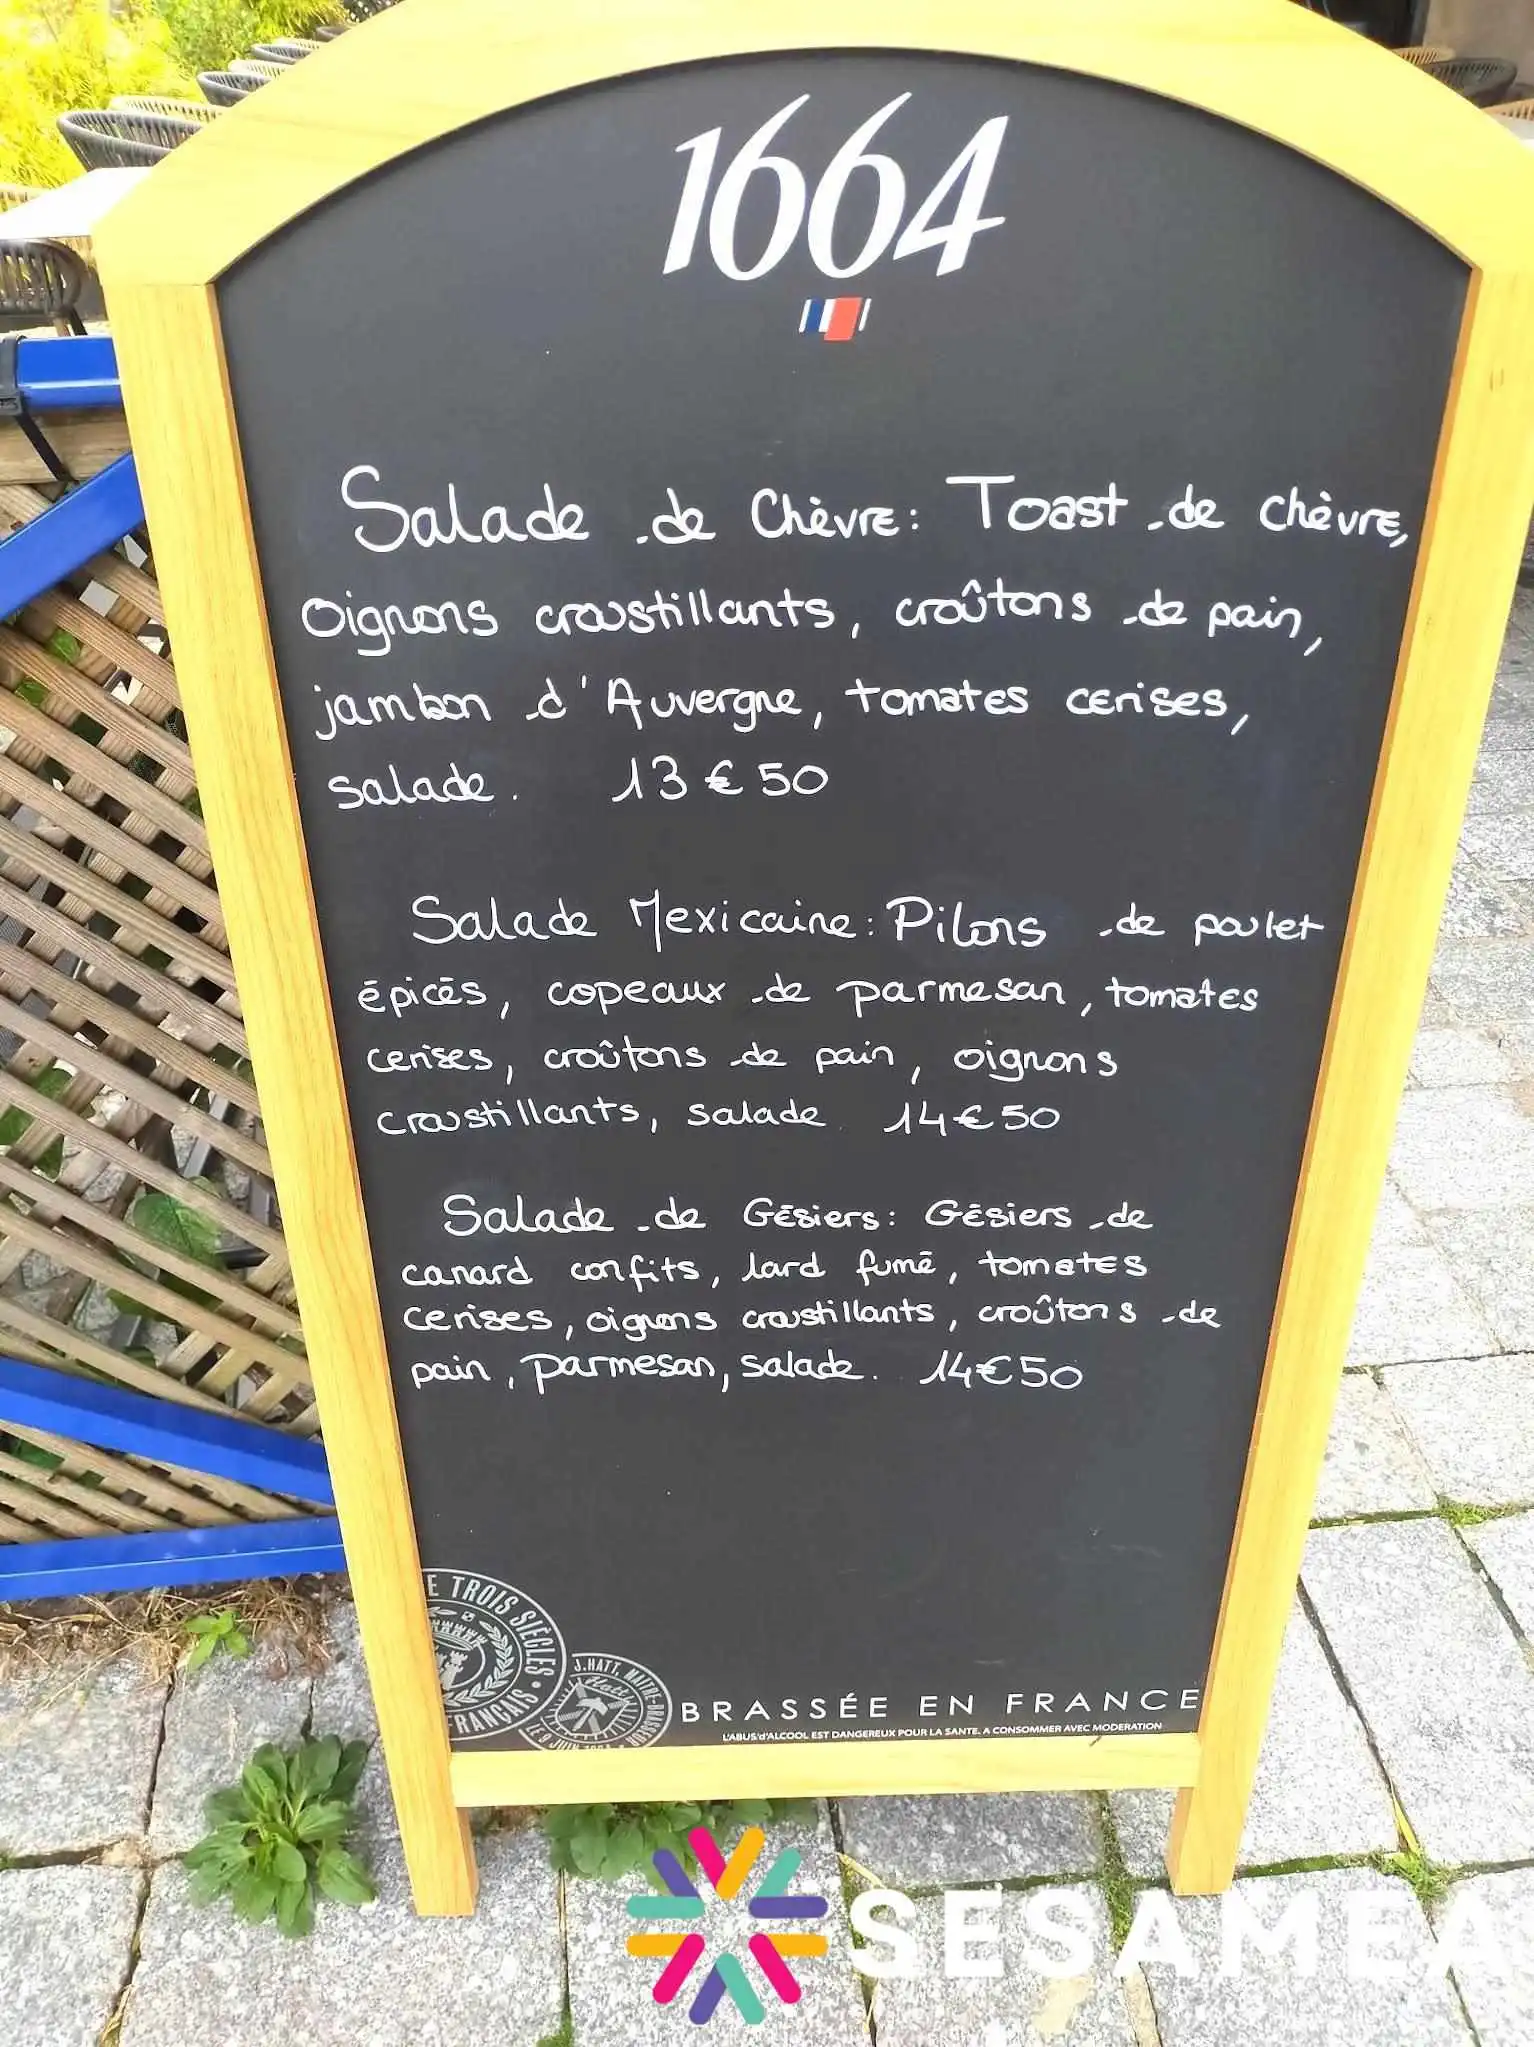 1664
Salade de Chèvre: Toast de chèvre,
oignons croustillants, croûtons de pain,
jambon d'Auvergne, tomates cerises,
salade. 13€50
Salade Mexicaine: Pilons de poulet
épicés, copeaux de parmesan, tomates
cerises, croûtons de pain, oignons
croustillants, salade. 14€50
Salade de Gésiers: Gésiers de
canard confits, lard fumé, tomates
cerises, oignons croustillants, croûtons de
pain, parmesan, salade. 14€50
E TROIS SIÈCLES •
FRANÇAIS •
J.HATT, MAITRE-BRASSEUR
Hatt
LE 9 JUIN
BRASSÉE EN FRANCE
L'ABUS d'ALCOOL EST DANGEREUX POUR LA SANTE. A CONSOMMER AVEC MODERATION
SESAMEA